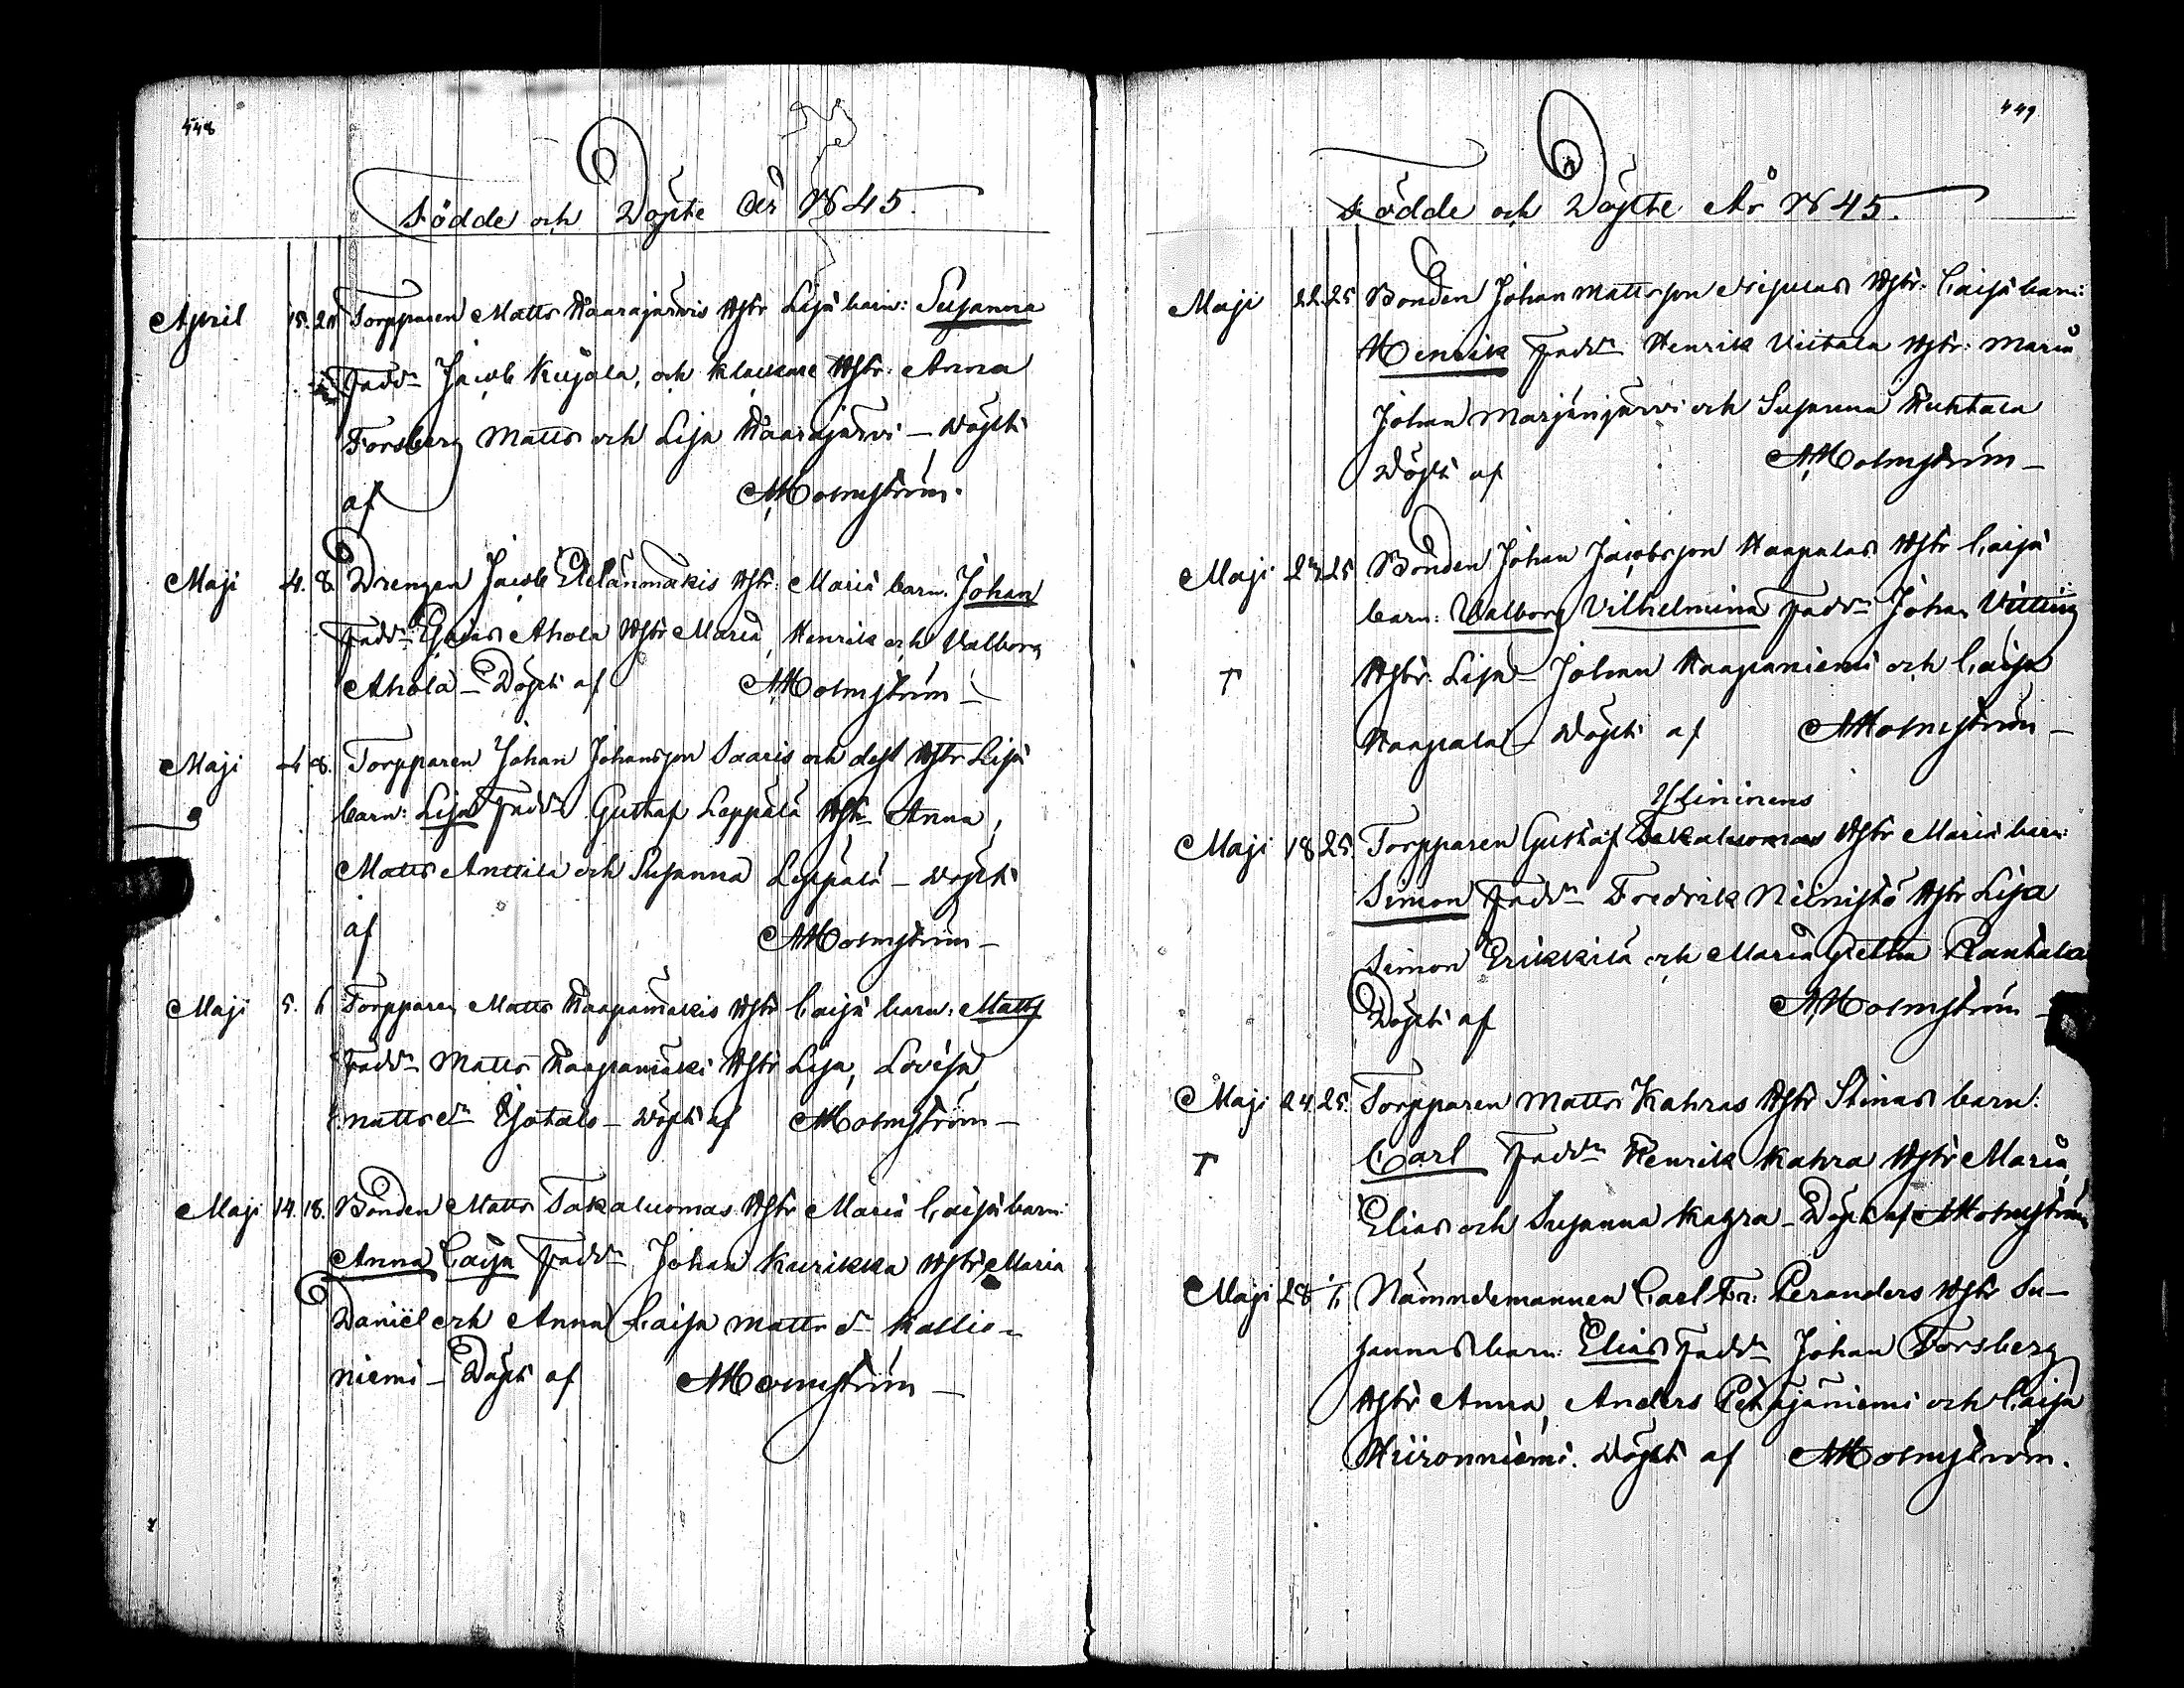 448
Födde och Döpte År 1845.
April 15. 20 Torpparen Matts Haarajärvis Hstr Lisa barn: Susanna
Fadd: Jacob Kujala, och klockare Hstr: Anna
Forsberg Matts och Lisa Haarajärvi — Döpt
af AHolmström.
Maji 4. 8. Drengen Jacob Hstr: Maria barn. Johan
Fadd: Ahola Hstr Maria, Henrik och Valborg
Ahola — Döpt af AHolmström —
Maji 4 8. Torpparen Johan Johansson Saaris och dess Hstr Lisa
barn: Lisa Fadd: Gustaf Leppälä Hstr Anna,
Matts Anttila och Susanna Leppälä — Döpt
af AHolmström —
Maji 5. 6 Torpparen Matts Haapamäkis Hstr Caisa barn: Matts
Fadd: Matts Haapamäki Hstr Lisa, Lovisa
Mattsdr — Döpt af AHolmström —
Maji 14. 18. Bonden Matts Takaluomas Hstr Maria Caisa barn:
Anna Caisa Fadd: Johan Kurikka Hstr Maria
Daniel och Anna Caisa Mattsdr Kallio-
niemi — Döpt af AHolmström —
449
Födde och Döpte År 1845.
Maji 22 25 Bonden Johan Mattsson Hstr: Caisa barn:
Henrik Fadd: Henrik Viitala Hstr: Maria
Johan Marjanjärvi och Susanna Huhtala
Döpt af AHolmström —
Maji 25 Bonden Johan Jacobsson Haapalas Hstr Caisa
barn: Valborg Vilhelmina Fadd: Johan Vitting
Hstr: Lisa — Johan Haapaniemi och Caisa
Haapala — Döpt af AHolmström —
Ylininens
Maji 18 25. Torpparen Gustaf Takaluomas Hstr Maria barn:
Simon Fadd: Fredrik Niinistö Hstr Lisa
Simon Erikkilä och Maria Gretha Rantala
Döpt af AHolmström —
Maji 24 25. Torpparen Matts Kahras Hstr Stinas barn:
Carl Fadd: Henrik Kahra Hstr Maria,
Elias och Susanna Kahra — Döpt af AHolmström
Maji 28 Nämndemannen Carl Fr: Peranders Hstr Su-
sannas barn: Elias Fadd: Johan Forsberg
Hstr Anna, Anders Petäjäniemi och Caisa
Hiironniemi. Döpt af AHolmström.